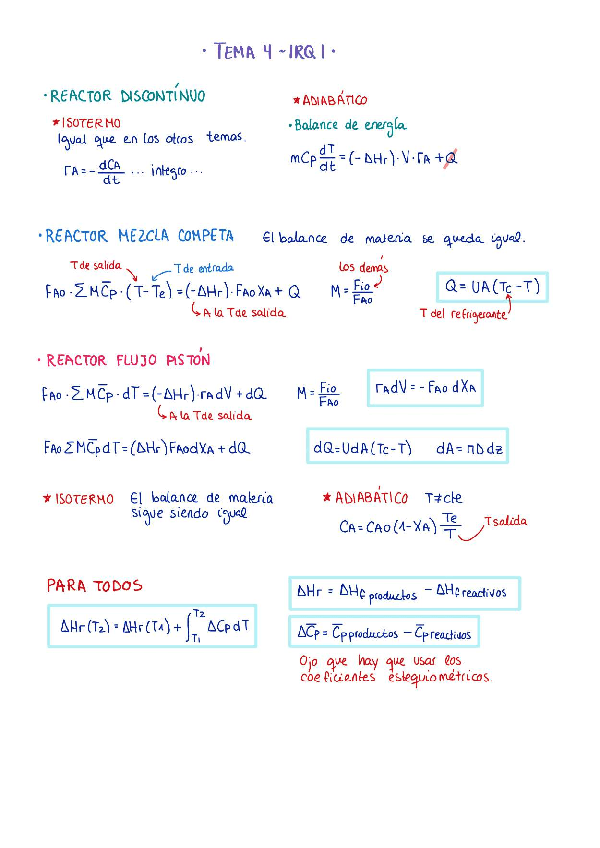 · TEMA 4 - IRQ I ·
· REACTOR DISCONTÍNUO
* ISOTERMO
Igual que en los otros temas.
rA = - dCA/dt ... integro ...
* ADIABÁTICO
· Balance de energía
mCp dT/dt = (-ΔHr) · V · rA + Q
· REACTOR MEZCLA COMPETA
El balance de materia se queda igual.
T de salida
T de entrada
FA0 · Σ M C̄p · (T - Te) = (-ΔHr) · FA0 XA + Q
A la T de salida
Los demás
M = Fi0/FA0
Q = UA (Tc - T)
T del refrigerante
· REACTOR FLUJO PISTÓN
FA0 · Σ M C̄p · dT = (-ΔHr) · rA dV + dQ
A la T de salida
M = Fi0/FA0
rA dV = - FA0 dXA
FA0 Σ M C̄p dT = (ΔHr) FA0 dXA + dQ
dQ = U dA (Tc - T) dA = π D dz
* ISOTERMO El balance de materia
sigue siendo igual
* ADIABÁTICO T ≠ cte
CA = CA0 (1 - XA) Te/T
T salida
PARA TODOS
ΔHr (T2) = ΔHr (T1) + ∫T1T2 ΔCp dT
ΔHr = ΔHf productos - ΔHf reactivos
ΔC̄p = C̄p productos - C̄p reactivos
Ojo que hay que usar los
coeficientes estequiométricos.